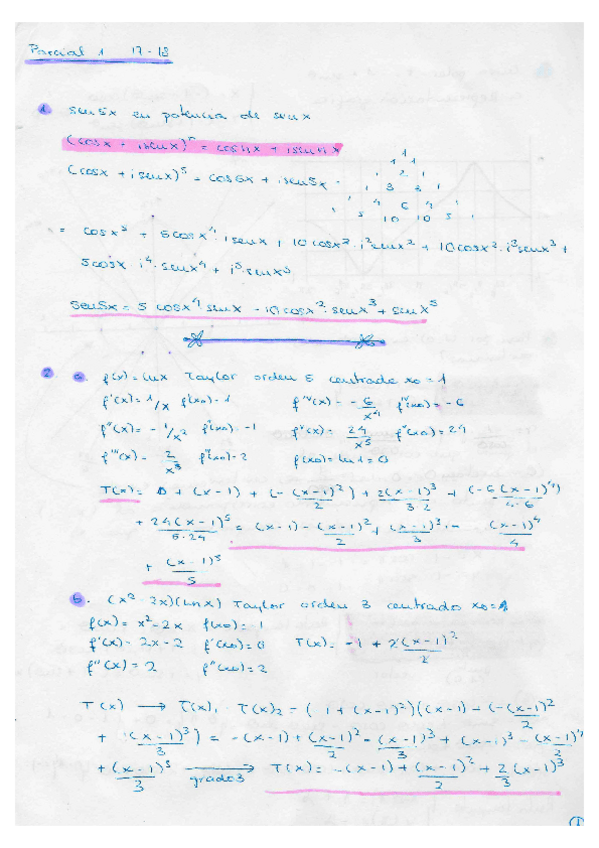 Parcial 1 17-18
1. sen5x en potencia de senx
(cosx + isenx)ⁿ = cosnx + isennx
(cosx + isenx)⁵ = cos5x + isen5x
= cosx⁵ + 5cosx⁴ · isenx + 10cosx³ · i²senx² + 10cosx² · i³senx³ +
5cosx · i⁴ · senx⁴ + i⁵ · senx⁵
sen5x = 5 cosx⁴ senx - 10cosx² · senx³ + senx⁵
2. a. f(x) = lnx Taylor orden 5 centrado x₀ = 1
f'(x) = 1/x f'(x₀) = 1 f^IV(x) = -6/x⁴ f^IV(x₀) = -6
f''(x) = -1/x² f''(x₀) = -1 f^V(x) = 24/x⁵ f^V(x₀) = 24
f'''(x) = 2/x³ f'''(x₀) = 2 f(x₀) = ln1 = 0
T(x) = 0 + (x-1) + (-(x-1)²/2) + 2(x-1)³/3·2 + (-6(x-1)⁴/4·6)
+ 24(x-1)⁵/5·24 = (x-1) - (x-1)²/2 + (x-1)³/3 - (x-1)⁴/4
+ (x-1)⁵/5
b. (x²-2x)(lnx) Taylor orden 3 centrado x₀=1
f(x) = x²-2x f(x₀) = -1
f'(x) = 2x-2 f'(x₀) = 0 T(x) = -1 + 2(x-1)²/2
f''(x) = 2 f''(x₀) = 2
T(x) → T(x)₁ · T(x)₂ = (-1 + (x-1)²)((x-1) + (-(x-1)²/2
+ (x-1)³/3) = -(x-1) + (x-1)²/2 - (x-1)³/3 + (x-1)³ - (x-1)⁴/2
+ (x-1)⁵/3 → grado 3 T(x) = -(x-1) + (x-1)²/2 + 2/3 (x-1)³